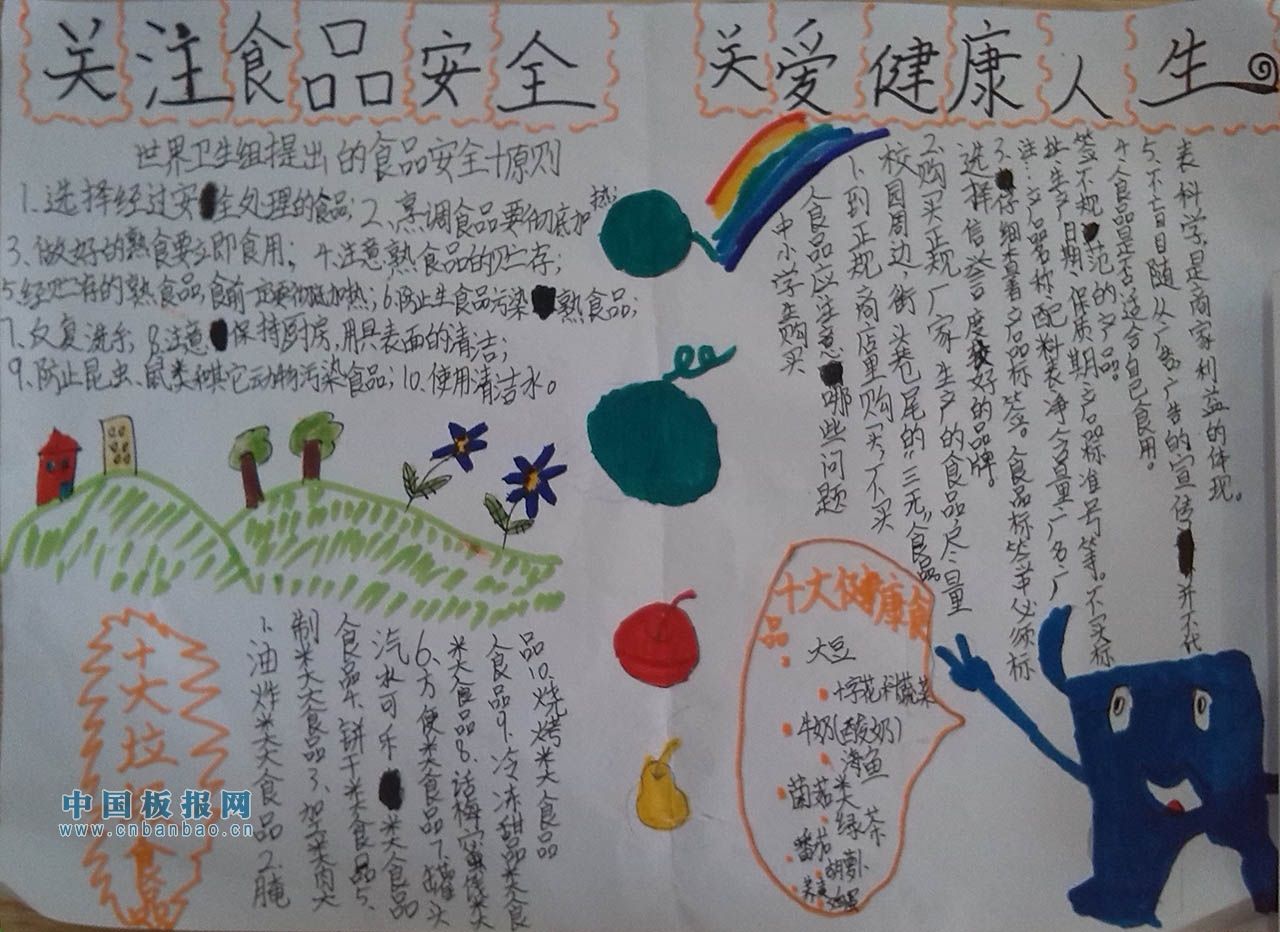 关注食品安全
关爱健康人生
世界卫生组提出的食品安全十原则
1.选择经过安全处理的食品;2、烹调食品要彻底加热;
3、做好的熟食要立即食用; 4.注意熟食品的贮存,
5经贮存的熟食品,食前一定要彻底加热;6.防止生食品污染熟食品;
7.反复洗手 8.注意保持厨房,用具表面的清洁;
9.防止昆虫、鼠类和其它动物污染食品;10.使用清洁水。
中小学生购买
食品应注意哪些问题
1、到正规商店里购买,不买
校园周边,街头巷尾的“三无”食品
2.购买正规厂家生产的食品尽量
选择信誉度较好的品牌。
3.仔细查看产品标签。食品标签必须标
注:产品名称,配料表净含量厂名厂
址生产日期,保质期产品标准号等。不买标
签不规范的产品。
4、食品是否适合自己食用。
5、不盲目随从广告,广告的宣传并不代
表科学,是商家利益的体现。
十大垃圾食品
1、油炸类食品2、腌
制类食品3、加工类肉
食品4、饼干类食品5、
汽水可乐类食品
6、方便类食品7、罐头
类食品8、话梅蜜饯类
食品9、冷冻甜品类食
品10、烧烤类食品
十大健康食
品
大豆
十字花科蔬菜
牛奶(酸奶)
海鱼
菌菇类
绿茶
番茄
胡萝卜
中国板报网
www.cnbanbao.cn